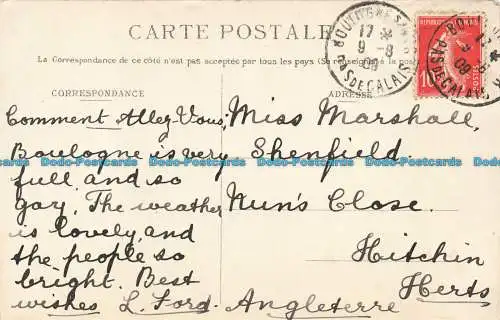 CARTE POSTALE
La Correspondance de ce côté n'est pas acceptée par tous les pays (Se renseigner à la poste)
CORRESPONDANCE
ADRESSE
17 *
9 - 8
09
PAS DE CALAIS
REPUBLIQUE FRANÇAISE
10
Comment Allez-Vous,
Boulogne is very
full and so
gay, The weather
is lovely, and
the people so
bright. Best
wishes L. Ford.
Miss Marshall,
Shenfield
Nun's Close.
Hitchin
Herts
Angleterre
Dodo-Postcards Dodo-Postcards Dodo-Postcards Dodo-Postcards Dodo-Postcards